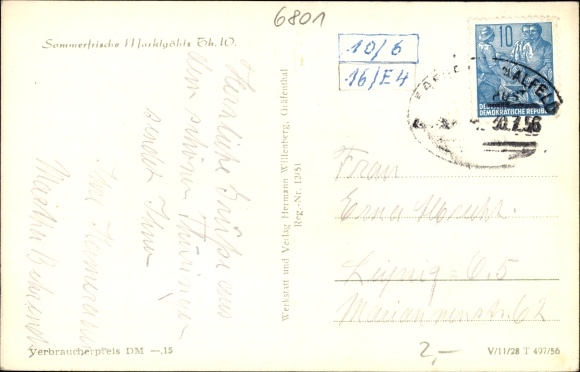 6801
Sommerfrische Marktgölitz Th. W.
10/6
16/E4
10
DEUTSCHE
DEMOKRATISCHE REPUBLIK
SAALFELD
30.7.56
Herzliche Grüße aus
dem schönen Thüringen
sendet Ihnen
Ihre
Martha
Werkstatt und Verlag Hermann Willenberg, Gräfenthal
Reg.-Nr. 12/51
Frau
Erna Albrecht.
Leipzig = O. 5
Mariannenstr. 62
Verbraucherpreis DM —,15
2,-
V/11/28 T 497/56